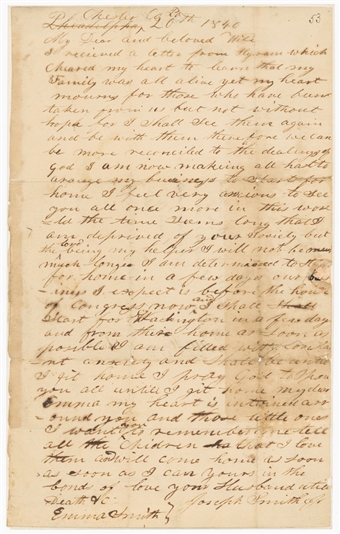 Chester Co Pa
53
Philadelphia, 20th 1840
My Dear and beloved Wife
I recieved a letter from Hyram which
cheared my heart to learn that my
Family was all alive yet my heart
mourns for those who have been
taken from us but not without
hope for I shall see them again
and be with them therefore we can
be more reconciled to the dealings of
God I am now making all hast to
arrange my business to start for
home I feel very anxious to see
you all once more in this world
the time seems long that I
am deprived of your society but
the Lord being my helper I will not be
much longer I am determined to start
for home in a few days our
I expect is before the house
of Congress now and I shall start
Start for Washington in a few days
and from there home as soon as
posible I am filled with constant
anxiety and shall be untill
I git home I pray God to
you all untill I git home my dear
Emma my heart is intwined arround
you and those little ones
I want you to remember me tell
all the Children that I love
them and will come home as soon
as soon as I can yours in the
bonds of love your Husband until
Death &c
Joseph Smith Jr
Emma Smith